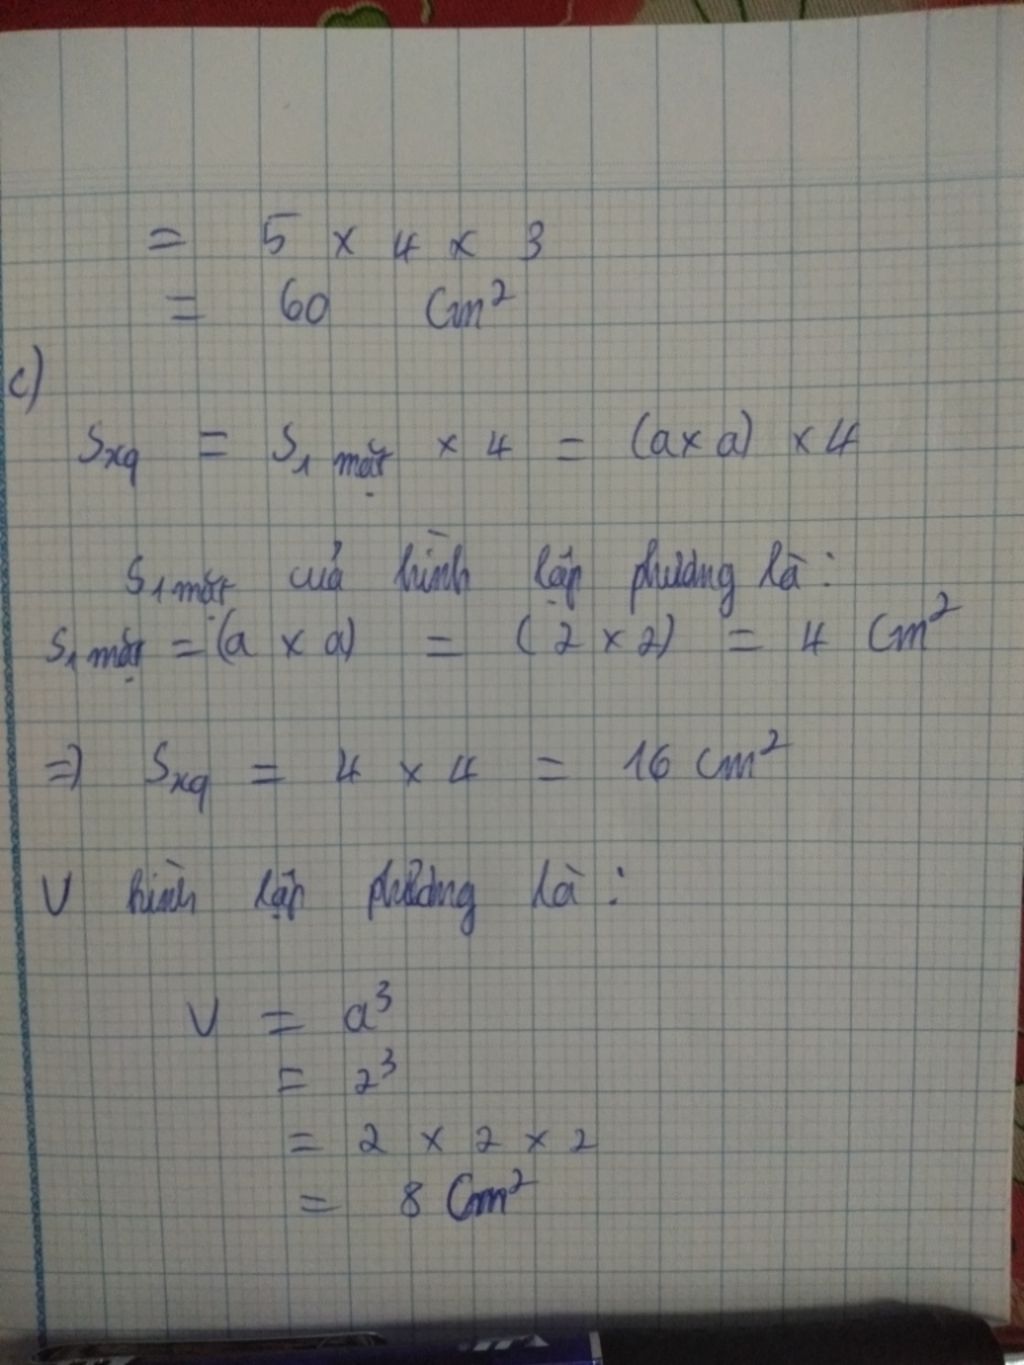 = 5 × 4 × 3
= 60 Cm²
c)
Sxq = S1 mặt × 4 = (a × a) × 4
S1 mặt của hình lập phương là:
S1 mặt = (a × a) = (2 × 2) = 4 Cm²
=> Sxq = 4 × 4 = 16 cm²
V hình lập phương là:
V = a³
= 2³
= 2 × 2 × 2
= 8 Cm²